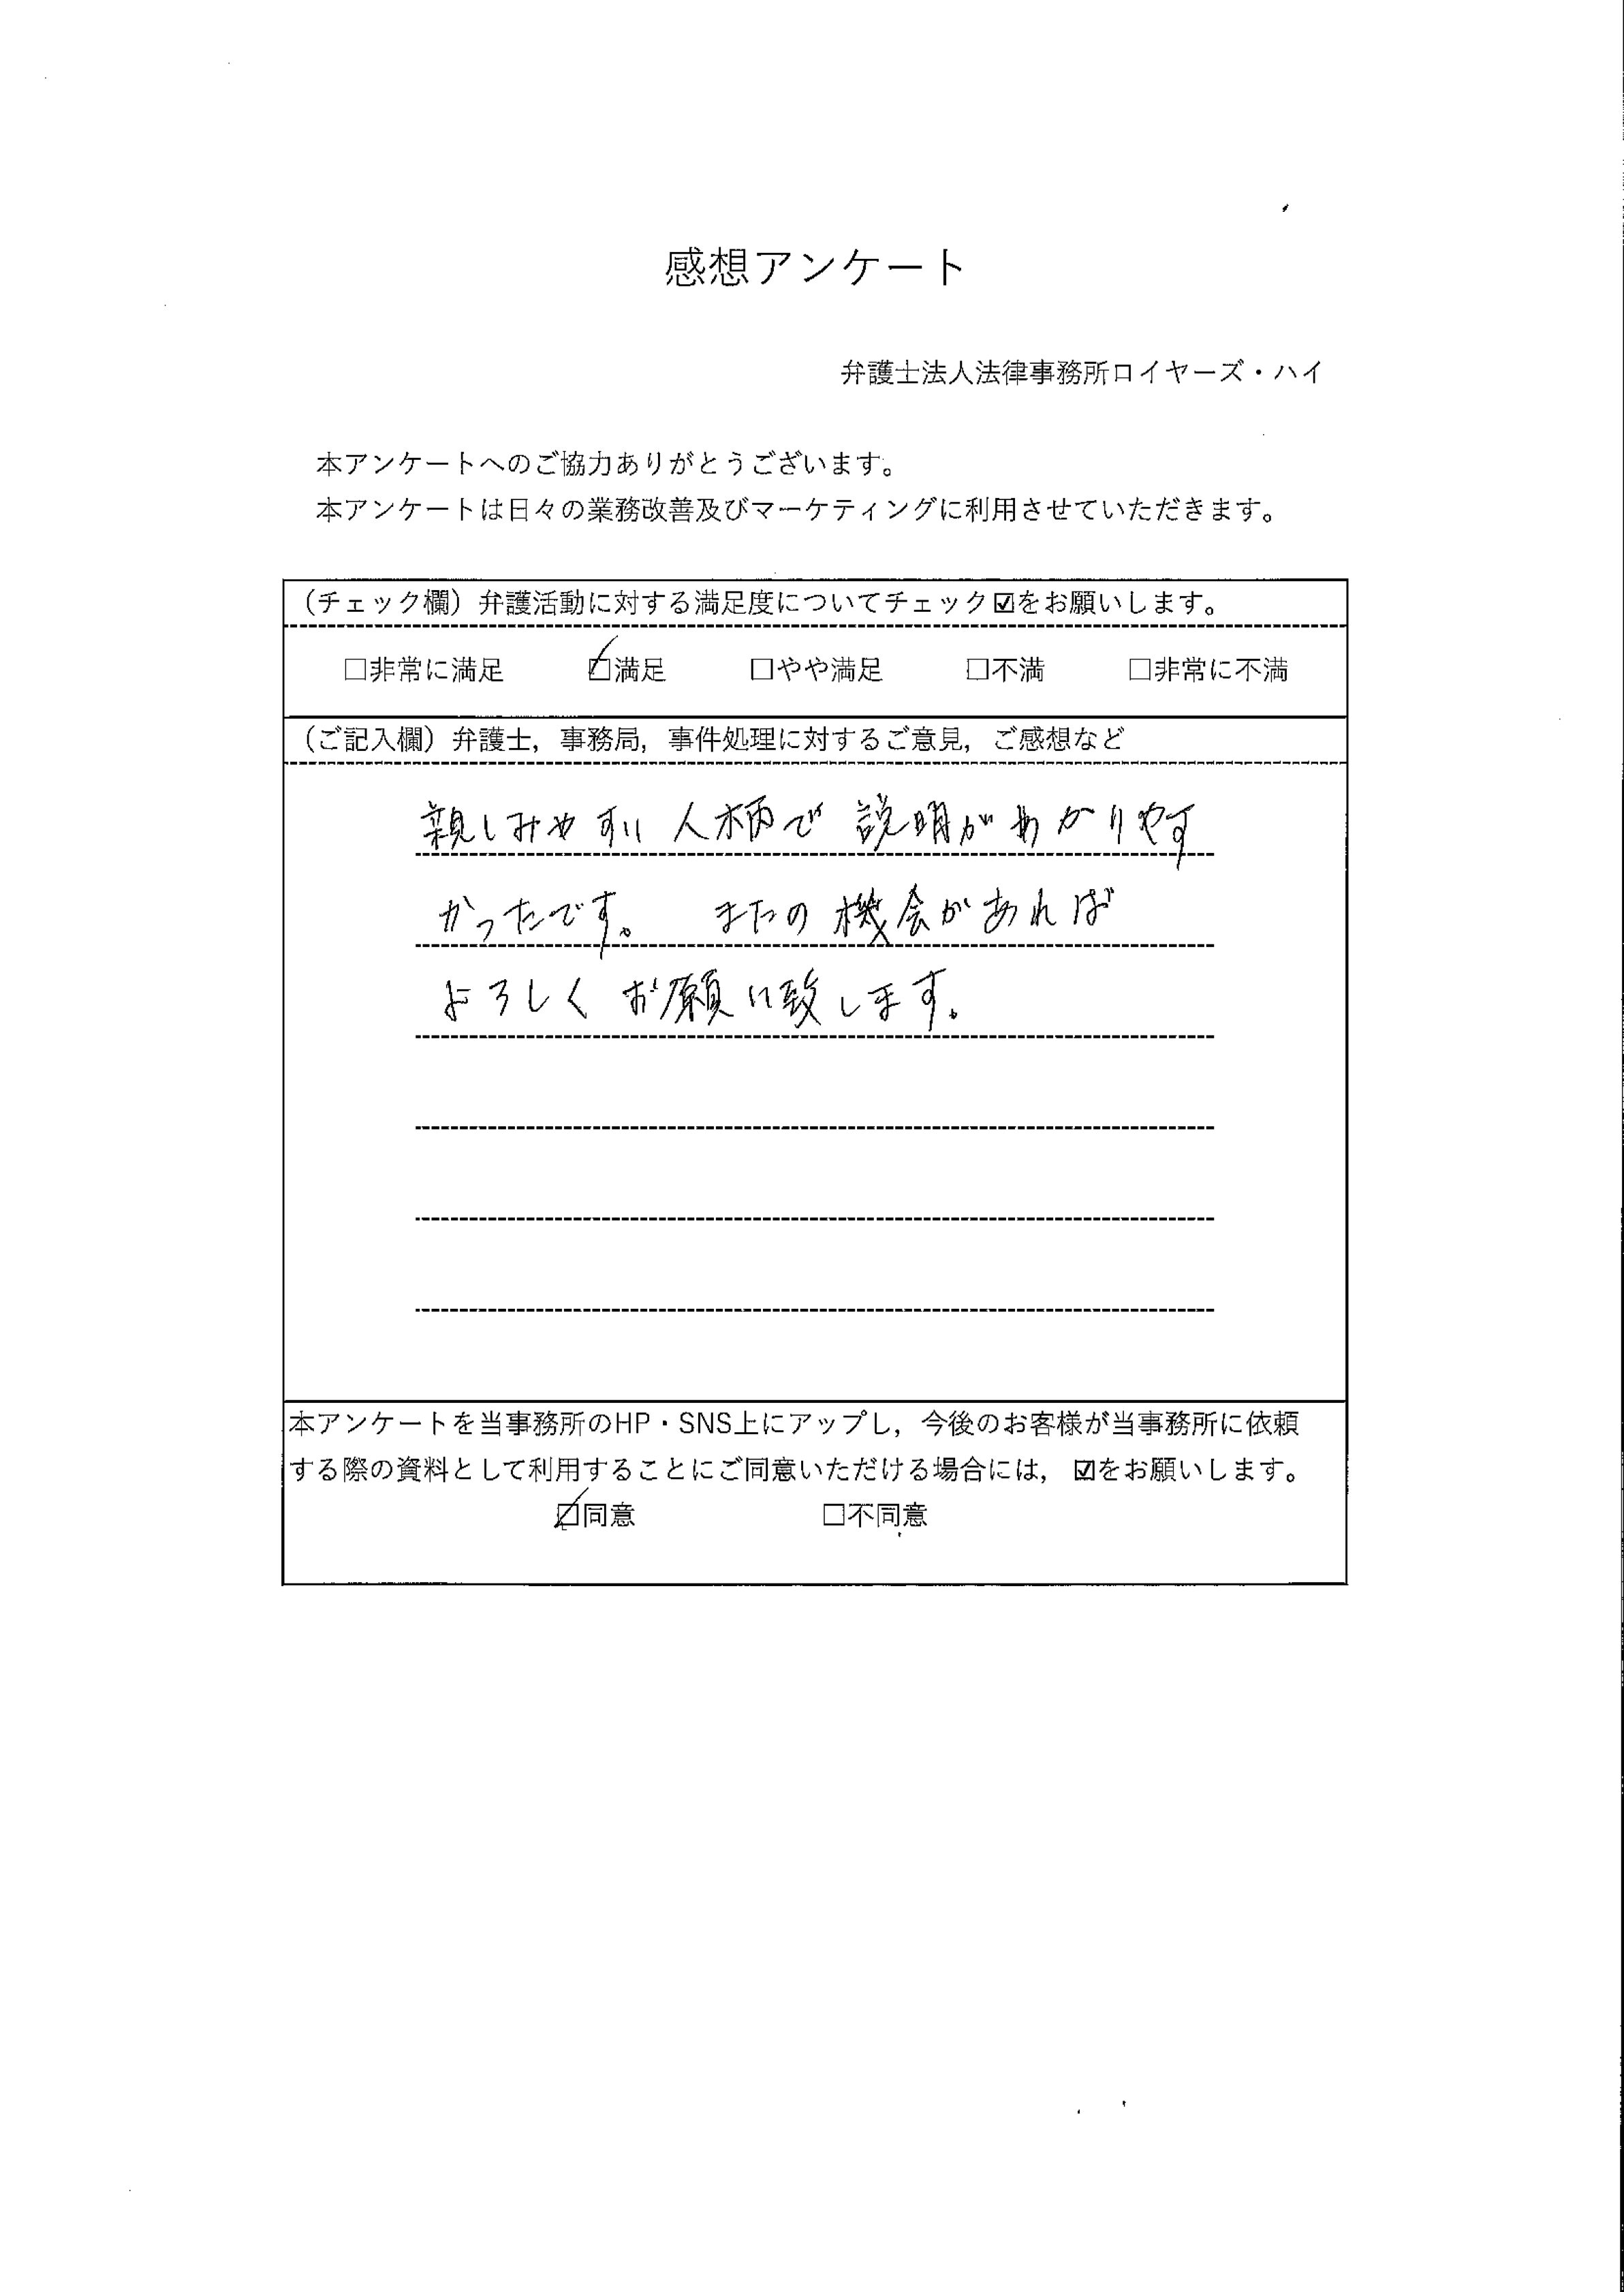 感想アンケート
弁護士法人法律事務所ロイヤーズ・ハイ
本アンケートへのご協力ありがとうございます。
本アンケートは日々の業務改善及びマーケティングに利用させていただきます。
（チェック欄）弁護活動に対する満足度についてチェック☑をお願いします。
□非常に満足 ☑満足 □やや満足 □不満 □非常に不満
（ご記入欄）弁護士，事務局，事件処理に対するご意見，ご感想など
親しみやすい人柄で 説明がわかりやす
かったです。 またの機会があれば
よろしくお願い致します。
本アンケートを当事務所のHP・SNS上にアップし，今後のお客様が当事務所に依頼
する際の資料として利用することにご同意いただける場合には，☑をお願いします。
☑同意 □不同意